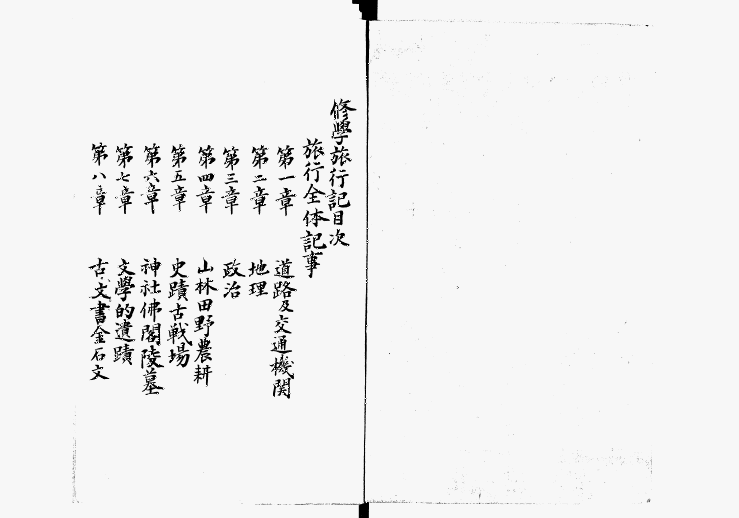 修學旅行記目次
旅行全体記事
第一章 道路及交通機関
第二章 地理
第三章 政治
第四章 山林田野農耕
第五章 史蹟古戦場
第六章 神社佛閣陵墓
第七章 文學的遺蹟
第八章 古文書金石文